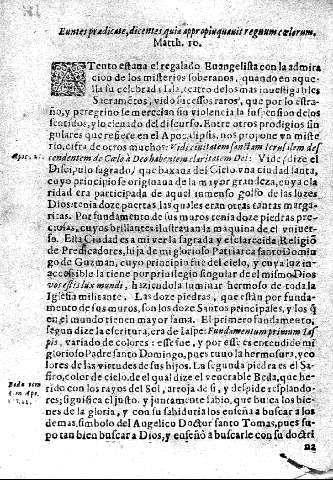 Euntes prædicate, dicentes quia appropinquauit regnum cœlorum.
Matth. 10.
ATento estaua el regalado Euangelista con la admira
cion de los misterios soberanos, quando en aque
lla su celebrada Isla, teatro de los mas inuestigables
Sacramẽtos, vido sucessos raros, que por lo estra-
ño, y peregrino se merecian su violencia la suspension de los
sentidos, y lo eleuado del discurso. Entre otros prodigios sin
gulares que refiere en el Apocalipsis, nos propone vn miste
rio, cifra de otros muchos: Vidi ciuitatem sanctam Ierusalem des
Apoc. 21.
cendentem de Cælo à Deo habentem claritatem Dei: Vide (dize el
Discipulo sagrado) que baxaua del Cielo vna ciudad santa,
cuyo principio se originaua de la mayor grandeza, cuya cla
ridad era participada de aquel inmenso golfo de las luzes
Dios: tenia doze puertas, las quales eran otras tantas marga-
ritas. Por fundamento de sus muros tenia doze piedras pre-
ciosas, cuyos brillantes ilustrauan la maquina de el vniuer-
so. Esta Ciudad es a mi ver la sagrada y esclarecida Religiõ
de Predicadores, hija de mi glorioso Patriarca santo Domin
go de Guzman, cuyo principio fue del cielo, y cuya luz in-
accessible la tiene por priuilegio singular de el mismo Dios
vos estis lux mundi, haziendola luminar hermoso de toda la
Iglesia militante. Las doze piedras, que estàn por funda-
mento de sus muros, son los doze Santos principales, y los q̃
en el mundo tienen mayor fama. El primero fundamento,
segun dize la escritura, era de Iaspe: Fundamentum primum Ias
pis, variado de colores: esse fue, y por esse es entendido mi
glorioso Padre santo Domingo, pues tuuo la hermosura, y co
lores de las virtudes de sus hijos. La segunda piedra es el Sa-
firo, color de cielo, de el qual dize el venerable Beda, que he-
Beda
in Apc.
rido con los rayos del Sol, arroja de si, y despide resplando-
res; significa el justo, y juntamente sabio, que busca los bie-
nes de la gloria, y con su sabiduria los enseña a buscar a los
demas, simbolo del Angelico Doctor santo Tomas, pues su-
po tan bien buscar a Dios, y enseñò a buscarle con su doctri
na